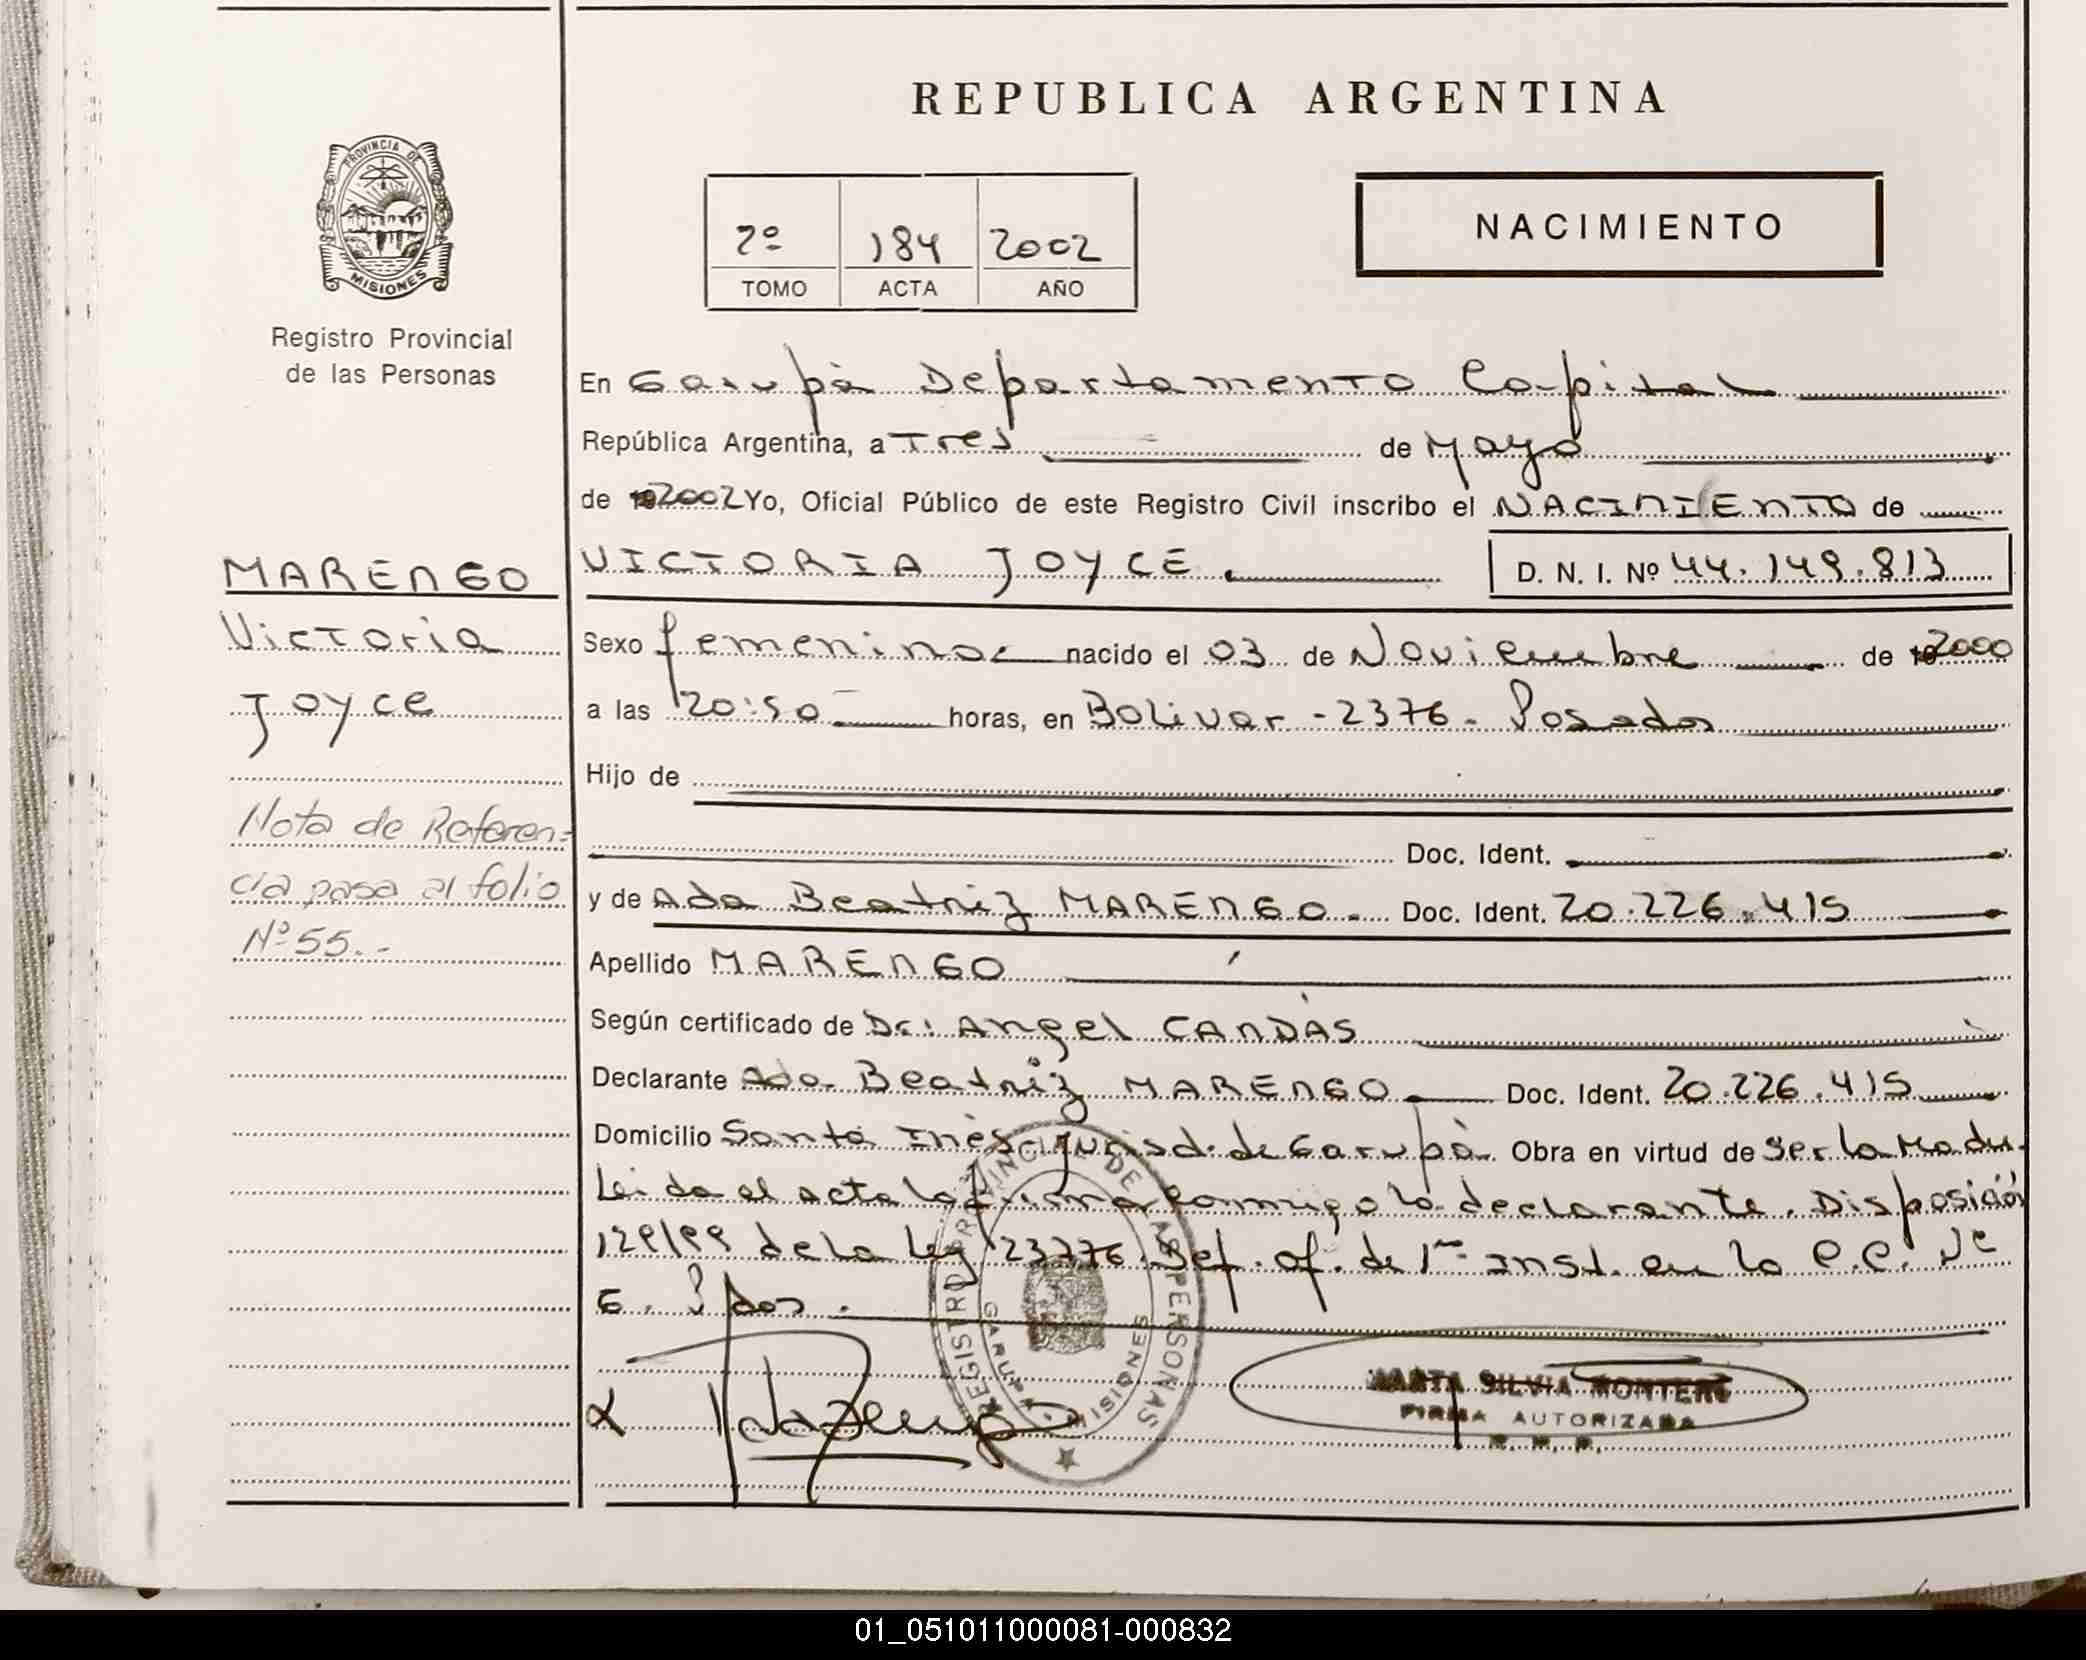 REPUBLICA ARGENTINA
PROVINCIA DE
MISIONES
Registro Provincial
de las Personas
2º 184 2002
TOMO ACTA AÑO
NACIMIENTO
En Garupà Departamento Capital
República Argentina, a Tres de Mayo
de 2002 Yo, Oficial Público de este Registro Civil inscribo el NACIMIENTO de
VICTORIA JOYCE. D. N. I. Nº 44.149.813
MARENGO
Victoria
Joyce
Sexo femenino nacido el 03 de Noviembre de 2000
a las 20:50 horas, en Bolivar - 2376 - Posadas
Hijo de
Doc. Ident.
Nota de Referen=
cia pasa al folio
Nº 55.-
y de Ada Beatriz MARENGO. Doc. Ident. 20.226.415
Apellido MARENGO
Según certificado de Dr: Angel CANDÀS
Declarante Ada Beatriz MARENGO Doc. Ident. 20.226.415
Domicilio Santa Inès jurisd. de Garupà. Obra en virtud de ser la Madre.
Leida el acta la firma conmigo la declarante. Disposición
129/99 de la Ley 23776. Jef. of. de 1ra Inst. en la
6. Pdas.
REGISTRO PROVINCIAL DE LAS PERSONAS
GARUPA MISIONES
MARTA SILVIA MONTERO
FIRMA AUTORIZADA
R. P. P.
01_051011000081-000832